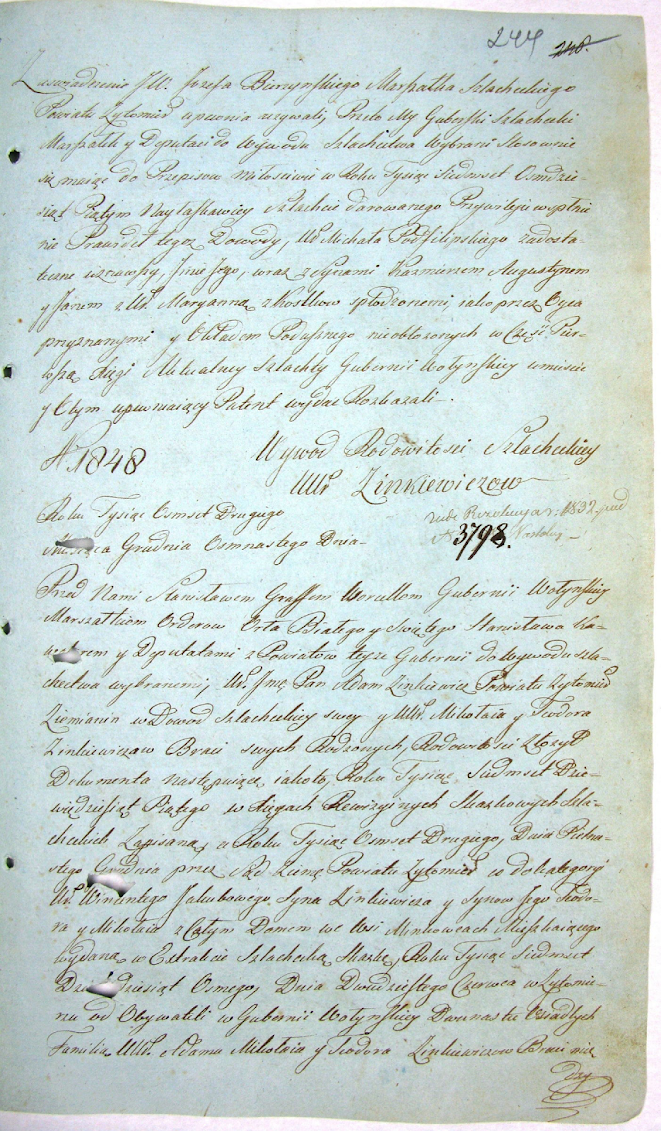 244 248.
Zaswiadczenie JW. Jozefa Burzynskiego Marszałka Szlacheckiego
Powiatu Zytomir upewnia używali, Przeto My Guberski Szlachecki
Marszałek y Deputaci do Wywodu Szlachectwa Wybrani Stosownie
się maiąc do Przepisow Miłosciwie w Roku Tysiąc Siedmset Osmdzie-
siąt Piątym Szlachcie darowanego Przywileju
Prawdet tegoż Dowody, Ur Michała Podfilipskiego zadosta-
teczne uznawszy, Imie Jego, wraz z Synami Kazimierzem Augustynem
y Janem z Ur. Maryanną z Kostkow spłodzonemi iako przez Oyca
przyznanymi y Okładem Podusznego nieobłożonych w Część Pier-
wszą Xięgi Aktualney Szlachty Gubernii Wołynskiey umiescic
y O tym upewniaiący Patent wydac Rozkazali.
N 1848
Wywod Rodowitosci Szlacheckiey
UUr Zinkiewiczow
Roku Tysiąc Osmset Drugiego
Miesiąca Grudnia Osmnastego Dnia
vide Rezolucya r: 1832 pod
N 3798.
Przed Nami Stanisławem Graffem Worcellem Gubernii Wołynskiey
Marszałkiem Orderow Orła Białego y Swiętego Stanisława Ka-
walerem y Deputatami z Powiatow teyże Gubernii do Wywodu szla-
chectwa wybranemi, Ur. Jmć Pan Adam Zinkiewicz Powiatu Zytomir
Ziemianin w Dowod Szlacheckiey swey y UUr. Mikołaia y Teodora
Zinkiewiczow Braci swych Rodzonych, Rodowitosci Złożył
Dokumenta następuiące iakoto, Roku Tysiąc Siedmset Dzie-
więdziesiąt Piątego w Xięgach Rewizyinych Skazkowych Szla-
checkich Zapisaną, a Roku Tysiąc Osmset Drugiego, Dnia Pietna-
stego Grudnia przez Sąd Ziemę Powiatu Zytomir co do kategoryi
Ur. Winentego Jakubowego Syna Zinkiewicza y Synow Jego Teodo-
ra y Mikołaia z Całym Domem we Wsi Minkowcach Mieszkaiącego
wydaną w Extrakcie Szlachecką Skazkę, Roku Tysiąc Siedmset
Dziewiędziesiąt Osmego, Dnia Dwudziestego Czerwca w Zytomie-
rzu od Obywateli w Gubernii Wołynskiey Dwunastu Osiadłych
Familia UUr. Adama Mikołaia y Teodora Zinkiewiczow Braci mię
dzy